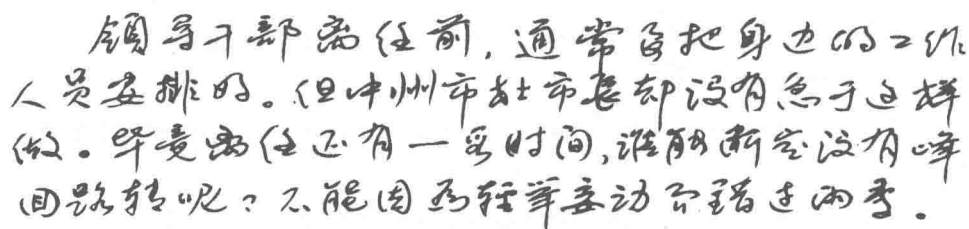 领导干部离任前,通常要把身边的工作
人员安排好。但中州市杜市长却没有急于这样
做。毕竟离任还有一段时间,谁能断定没有峰
回路转呢?不能因为轻举妄动而错过雨季。